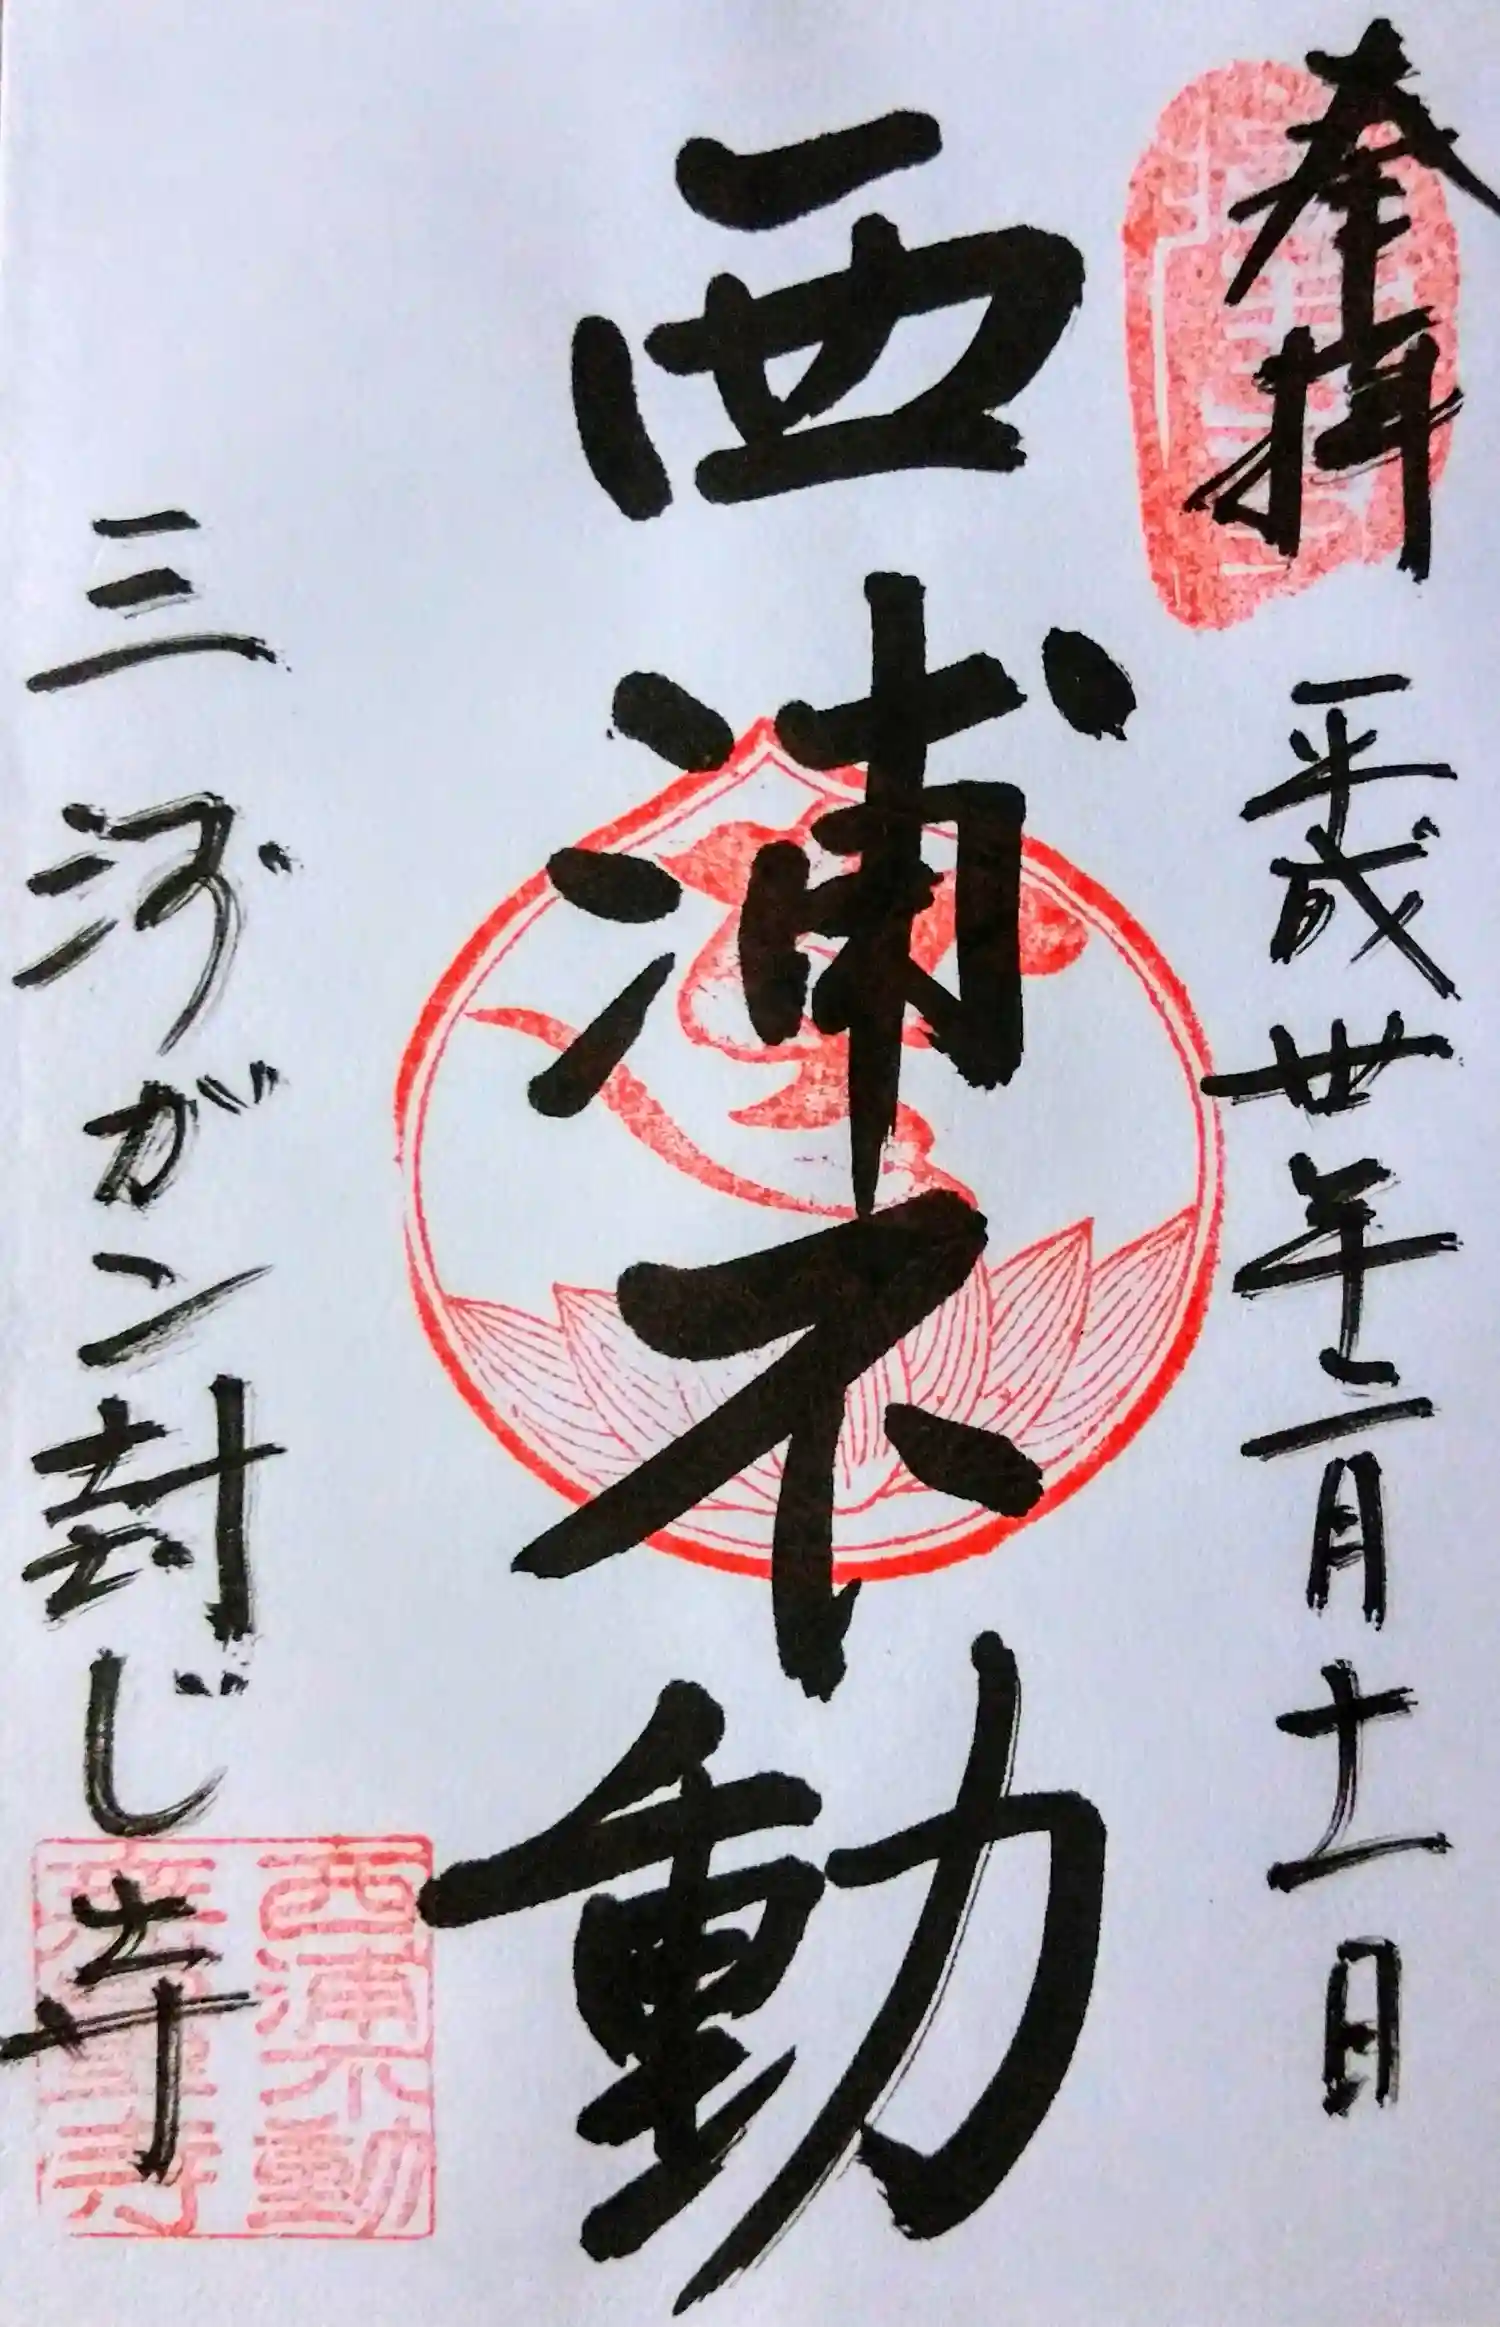 奉拝
平成卅年十二月十一日
西浦不動
三河ガン封じ寺
西浦不動
無量寺